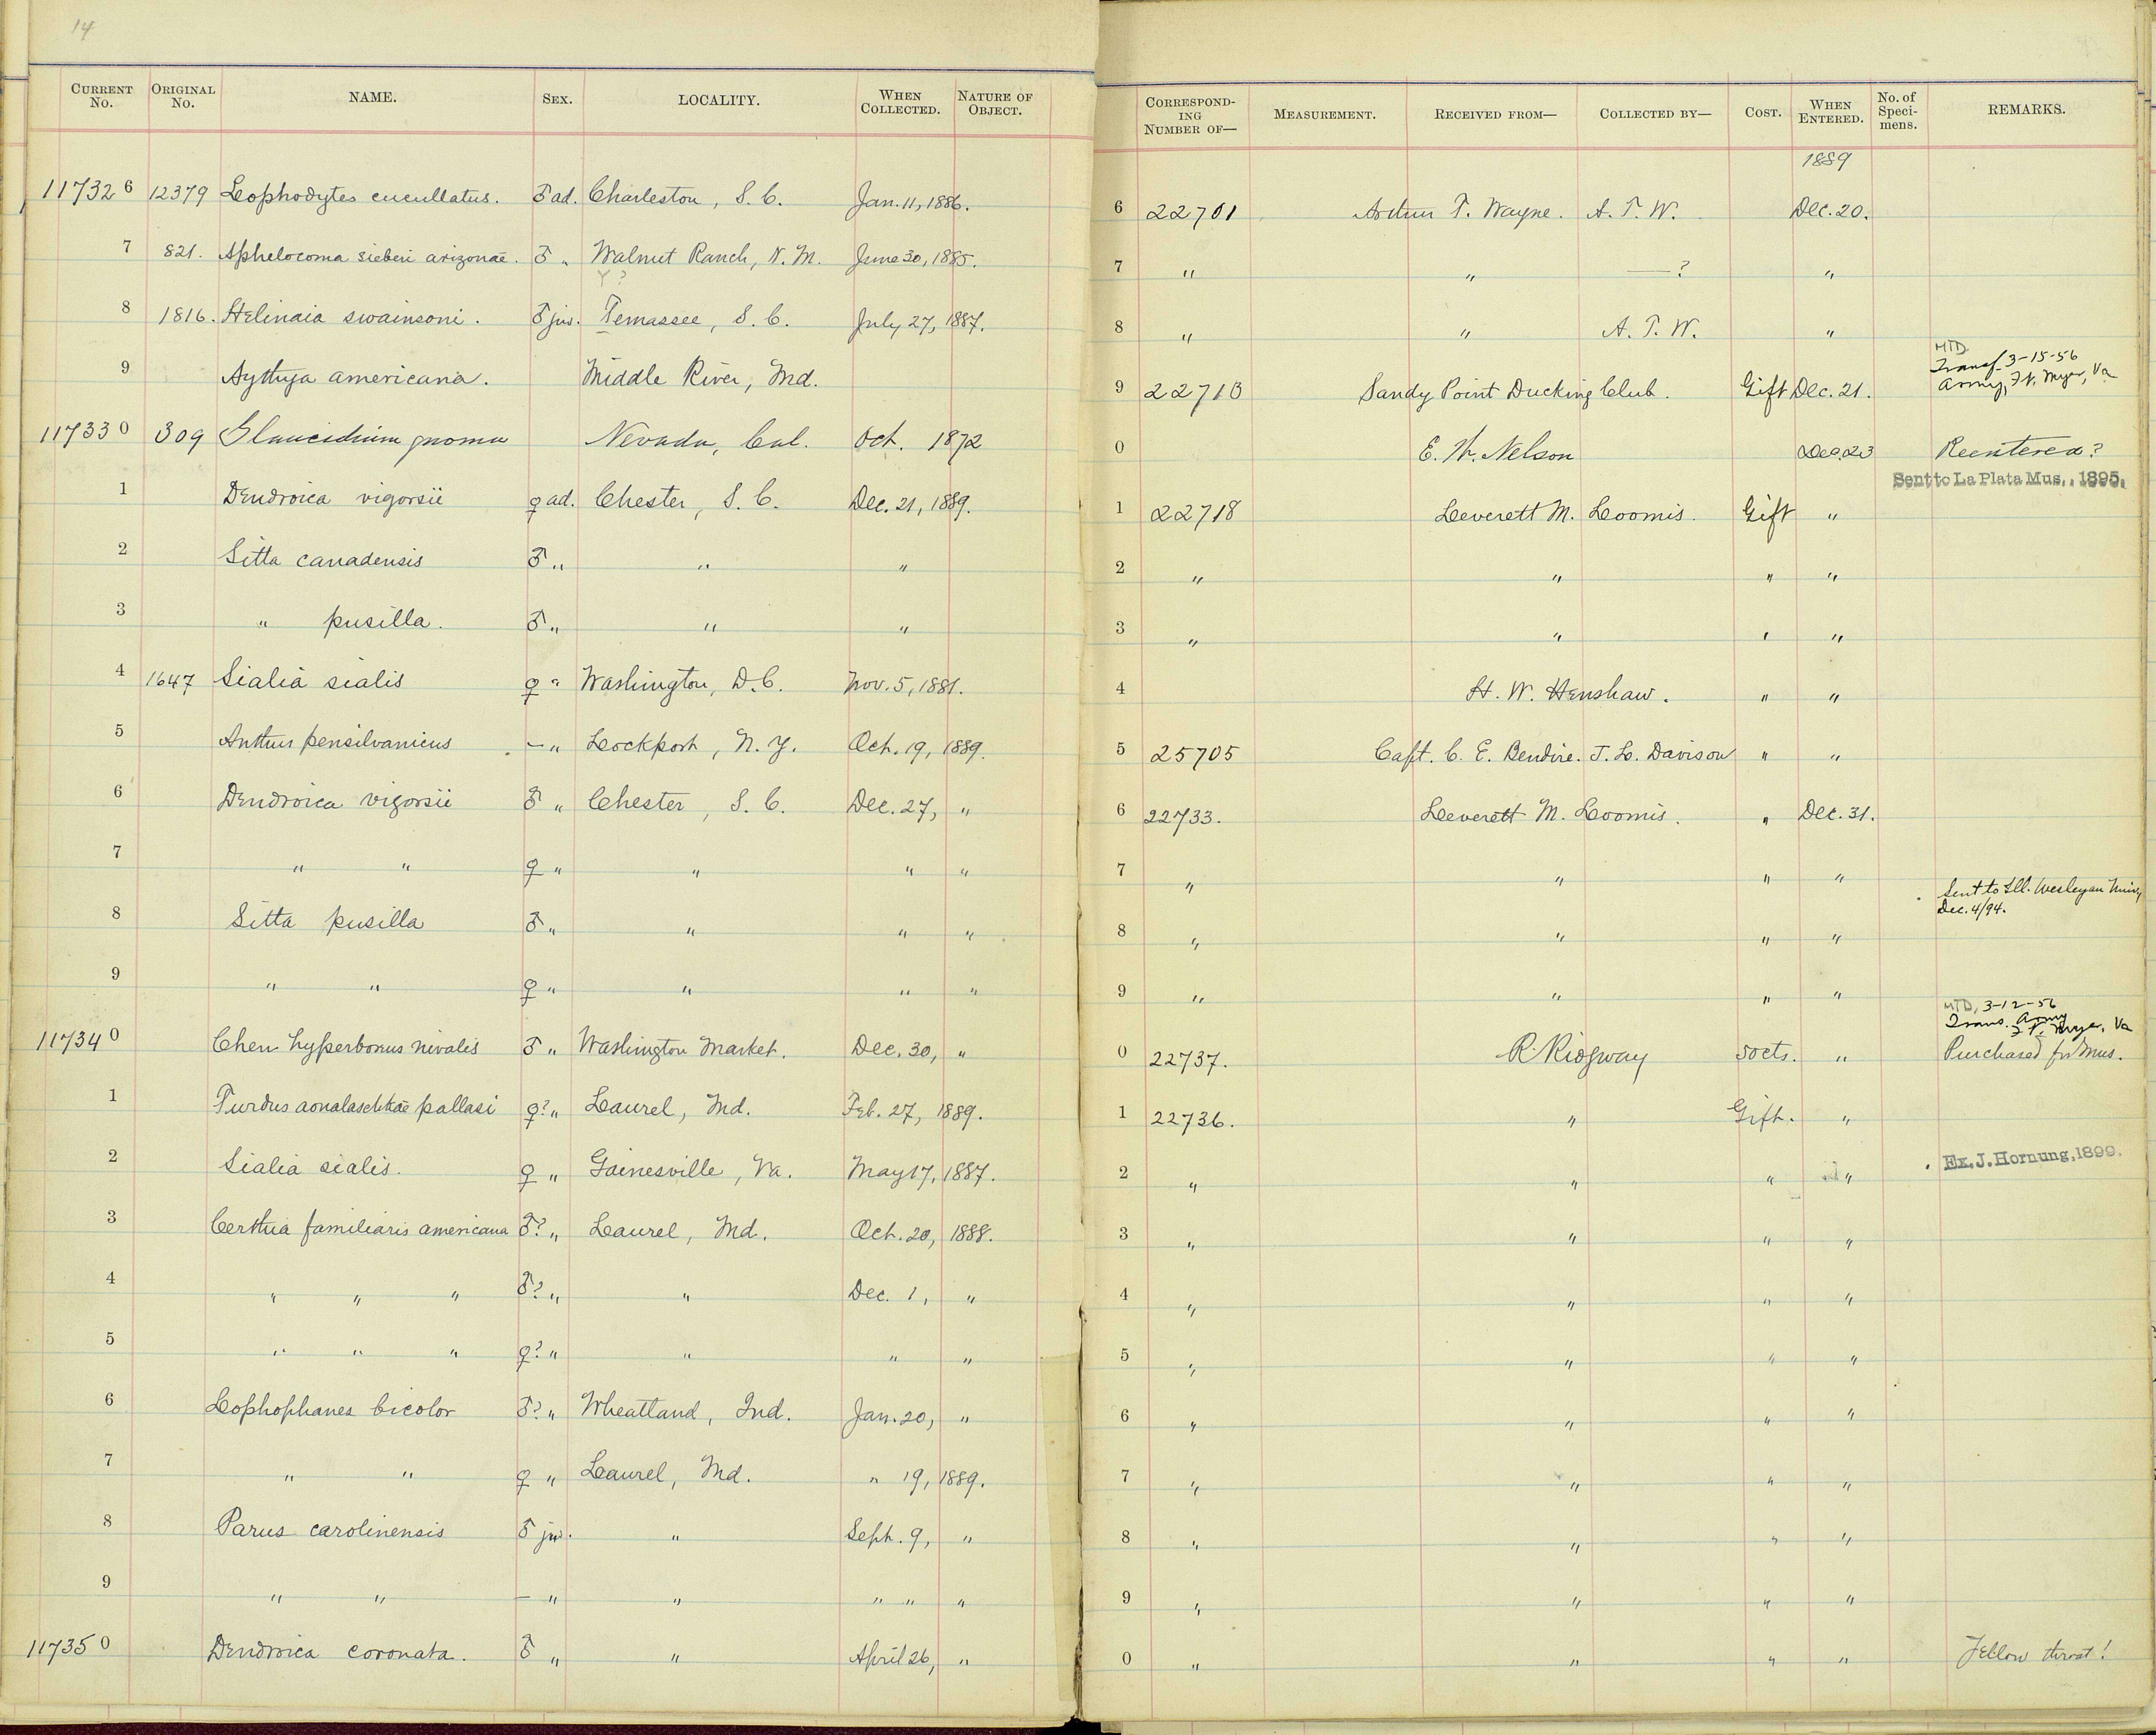 14
CURRENT No. ORIGINAL No. NAME. SEX. LOCALITY. WHEN COLLECTED. NATURE OF OBJECT.
117326 12379 Lophodytes cucullatus. ♂ ad. Charleston, S. C. Jan. 11, 1886.
7 821. Aphelocoma sieberi arizonae. ♂ " Walnut Ranch, N. M. June 30, 1885.
Y?
8 1816. Helinaia swainsoni. ♂ juv. Temassee, S. C. July 27, 1887.
9 Aythya americana. Middle River, Md.
117330 309 Glaucidium gnoma Nevada, Cal. Oct. 1872
1 Dendroica vigorsii ♀ ad. Chester, S. C. Dec. 21, 1889.
2 Sitta canadensis ♂ " " "
3 " pusilla. ♂ " " "
4 1647 Sialia sialis ♀ " Washington, D. C. Nov. 5, 1881.
5 Anthus pensilvanicus — " Lockport, N. Y. Oct. 19, 1889.
6 Dendroica vigorsii ♂ " Chester, S. C. Dec. 27, "
7 " " ♀ " " " "
8 Sitta pusilla ♂ " " " "
9 " " ♀ " " " "
117340 Chen hyperboreus nivalis ♂ " Washington Market. Dec. 30, "
1 Turdus aonalaschkae pallasi ♀? " Laurel, Md. Feb. 27, 1889.
2 Sialia sialis. ♀ " Gainesville, Va. May 17, 1887.
3 Certhia familiaris americana ♂? " Laurel, Md. Oct. 20, 1888.
4 " " " ♂? " " Dec. 1, "
5 " " " ♀? " " " "
6 Lophophanes bicolor ♂? " Wheatland, Ind. Jan. 20, "
7 " " ♀ " Laurel, Md. " 19, 1889.
8 Parus carolinensis ♂ juv. " Sept. 9, "
9 " " — " " " " "
117350 Dendroica coronata. ♂ " " April 26, "
CORRESPONDING NUMBER OF— MEASUREMENT. RECEIVED FROM— COLLECTED BY— COST. WHEN ENTERED. No. of Specimens. REMARKS.
1889
6 22701 Arthur T. Wayne. A. T. W. Dec. 20.
7 " " —? "
8 " " A. T. W. "
MTD
Transf. 3-15-56
9 22713 Sandy Point Ducking Club. Gift Dec. 21. Army, Ft. Myer, Va
0 E. W. Nelson Dec. 23 Reentered?
Sent to La Plata Mus., 1895.
1 22718 Leverett M. Loomis. Gift "
2 " " " "
3 " " " "
4 H. W. Henshaw. " "
5 25705 Capt. C. E. Bendire. J. L. Davison " "
6 22733. Leverett M. Loomis. " Dec. 31.
7 " " " "
Sent to Ill. Wesleyan Univ,
Dec. 4/94.
8 " " " "
9 " " " "
MTD, 3-12-56
Trans. Army
Ft. Myer, Va
0 22737. R Ridgway 50cts. " Purchased for Mus.
1 22736. " Gift. "
2 " " " " Ex. J. Hornung, 1899.
3 " " " "
4 " " " "
5 " " " "
6 " " " "
7 " " " "
8 " " " "
9 " " " "
0 " " " " Yellow throat!